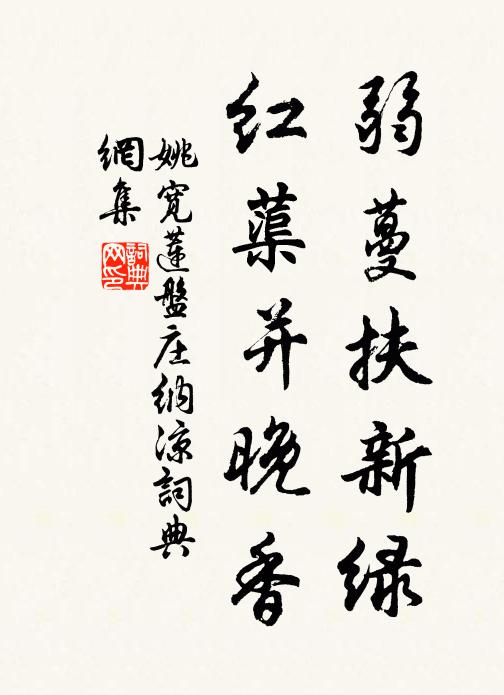 弱蔓扶新绿
红蕖并晚香
姚宽莲盤庄纳凉詞典
網集
詞典
网印